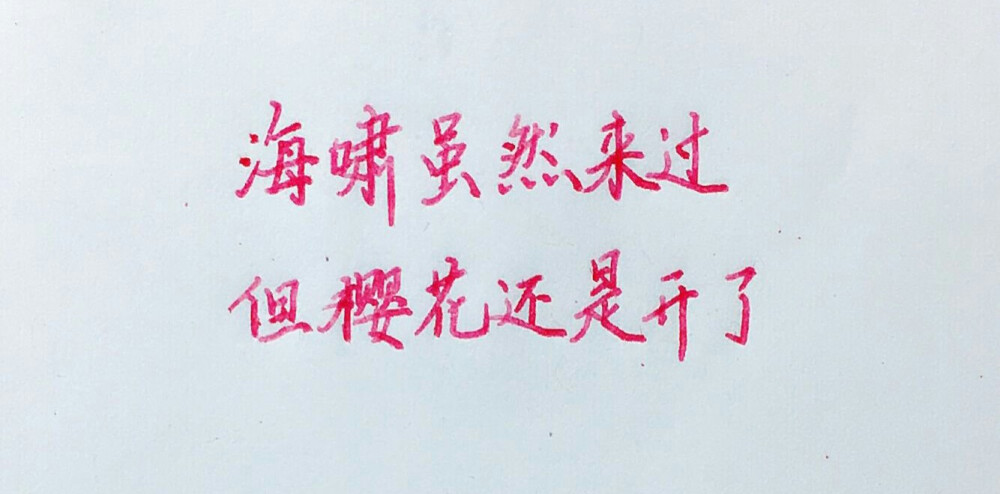 海啸虽然来过
但樱花还是开了